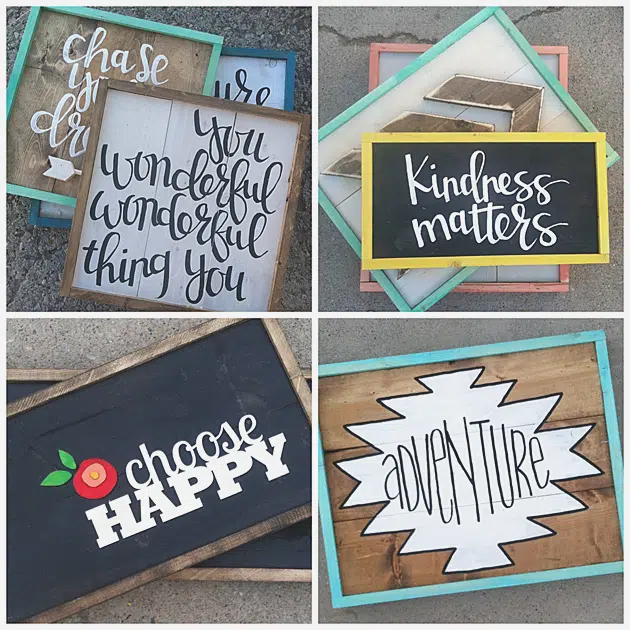 chase
you
wonderful
wonderful
thing you
Kindness
matters
choose
HAPPY
ADVENTURE